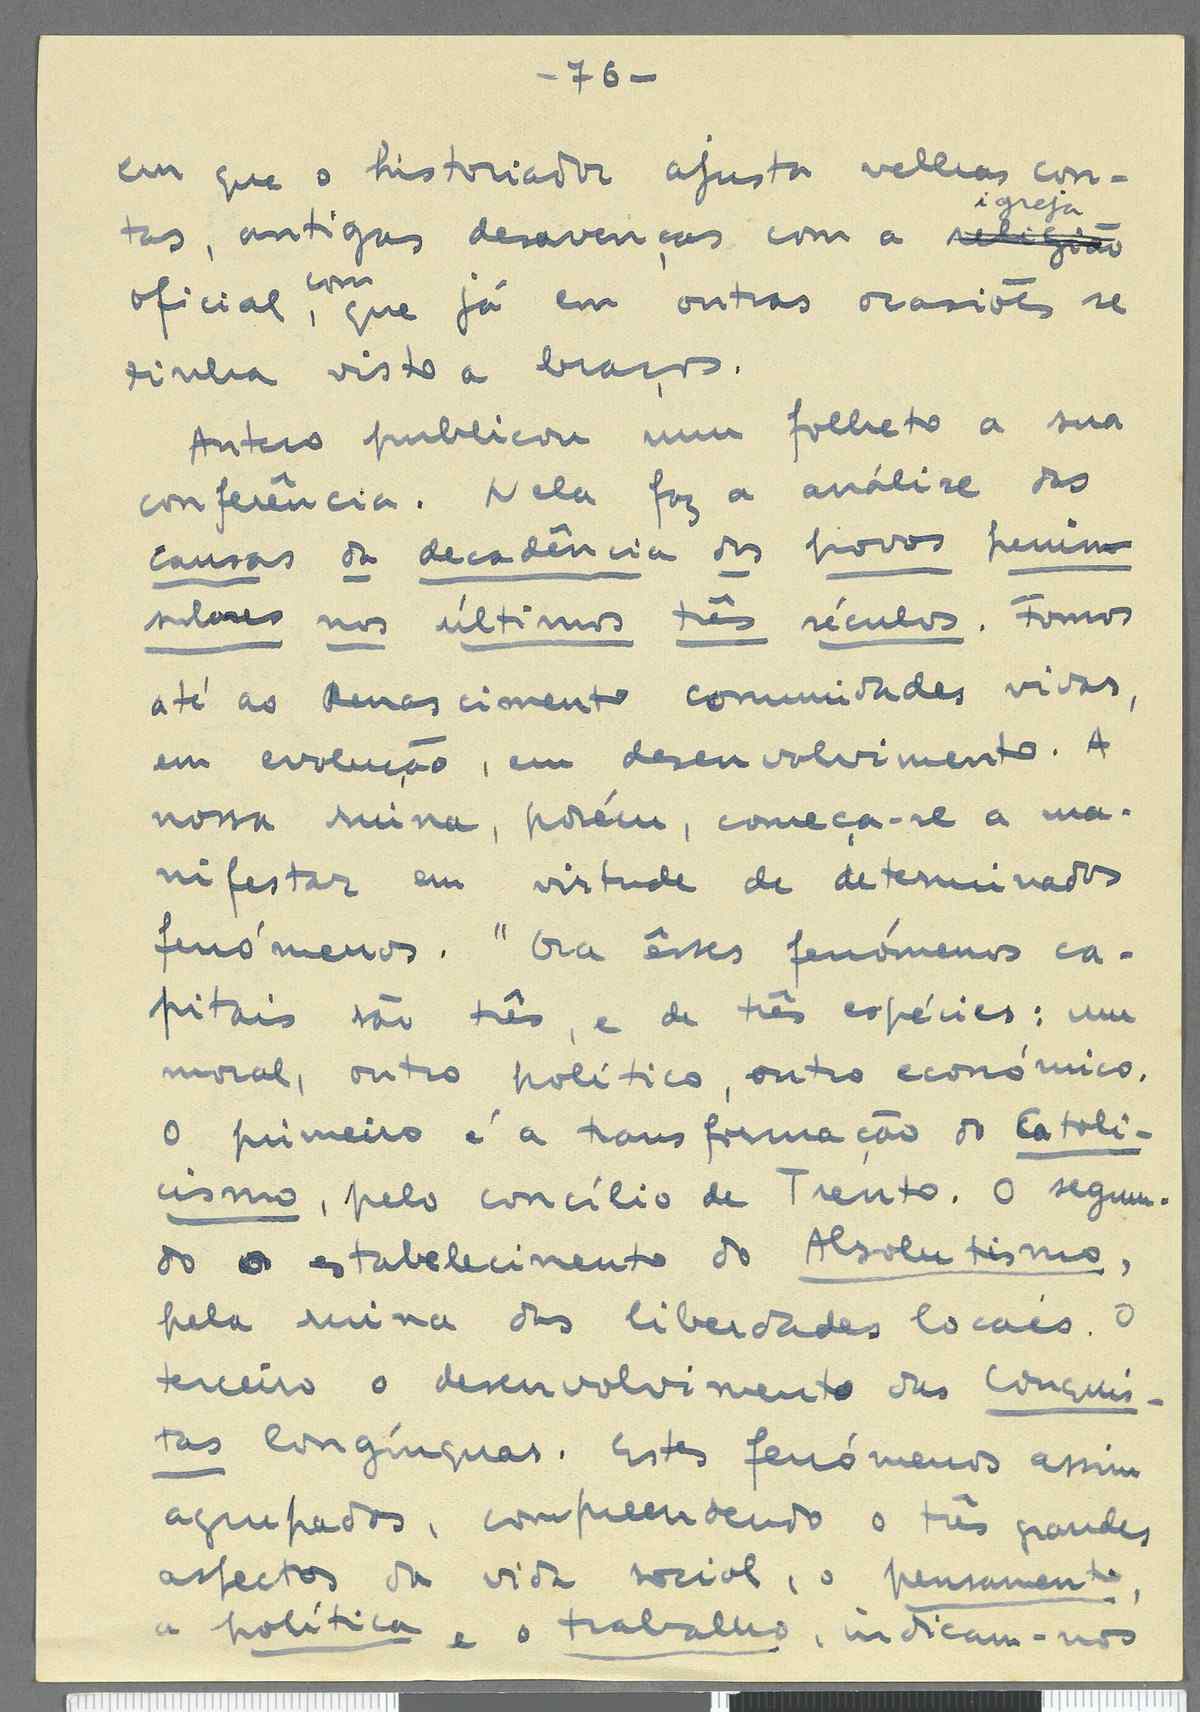 -76-
em que o historiador ajusta velhas con-
tas, antigas desavenças com a religião igreja
oficial, com que já em outras ocasiões se
tinha visto a braços.
Antero publicou num folheto a sua
conferência. Nela faz a análise das
causas da decadência dos povos penin
sulares nos últimos três séculos. Fomos
até ao Renascimento comunidades vivas,
em evolução, em desenvolvimento. A
nossa ruina, porém, começa-se a ma-
nifestar em virtude de determinados
fenómenos. "Ora êsses fenómenos ca-
pitais são três, e de três espécies: um
moral, outro político, outro económico.
O primeiro é a transformação do Catoli-
cismo, pelo concílio de Trento. O segun-
do o estabelecimento do Absolutismo,
pela ruina das liberdades locais. O
terceiro o desenvolvimento das Conquis-
tas longínquas. Estes fenómenos assim
agrupados, compreendendo o três grandes
aspectos da vida social, o pensamento,
a política e o trabalho, indicam-nos